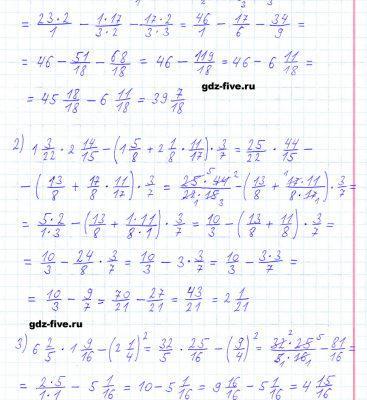 = 23·2/1 − 1·17/3·2 − 17·2/3·3 = 46/1 − 17/6 − 34/9 =
= 46 − 51/18 − 68/18 = 46 − 119/18 = 46 − 6 11/18 =
gdz-five.ru
= 45 18/18 − 6 11/18 = 39 7/18
2) 1 3/22 · 2 14/15 − (1 5/8 + 2 1/8 · 11/17) · 3/7 = 25/22 · 44/15 −
− (13/8 + 17/8 · 11/17) · 3/7 = 25·44/22·15 − (13/8 + 17·11/8·17) · 3/7 =
= 5·2/1·3 − (13/8 + 1·11/8·1) · 3/7 = 10/3 − (13/8 + 11/8) · 3/7 =
= 10/3 − 24/8 · 3/7 = 10/3 − 3 · 3/7 = 10/3 − 3·3/7 =
= 10/3 − 9/7 = 70/21 − 27/21 = 43/21 = 2 1/21
gdz-five.ru
3) 6 2/5 · 1 9/16 − (2 1/4)² = 32/5 · 25/16 − (9/4)² = 32·25/5·16 − 81/16 =
= 2·5/1·1 − 5 1/16 = 10 − 5 1/16 = 9 16/16 − 5 1/16 = 4 15/16